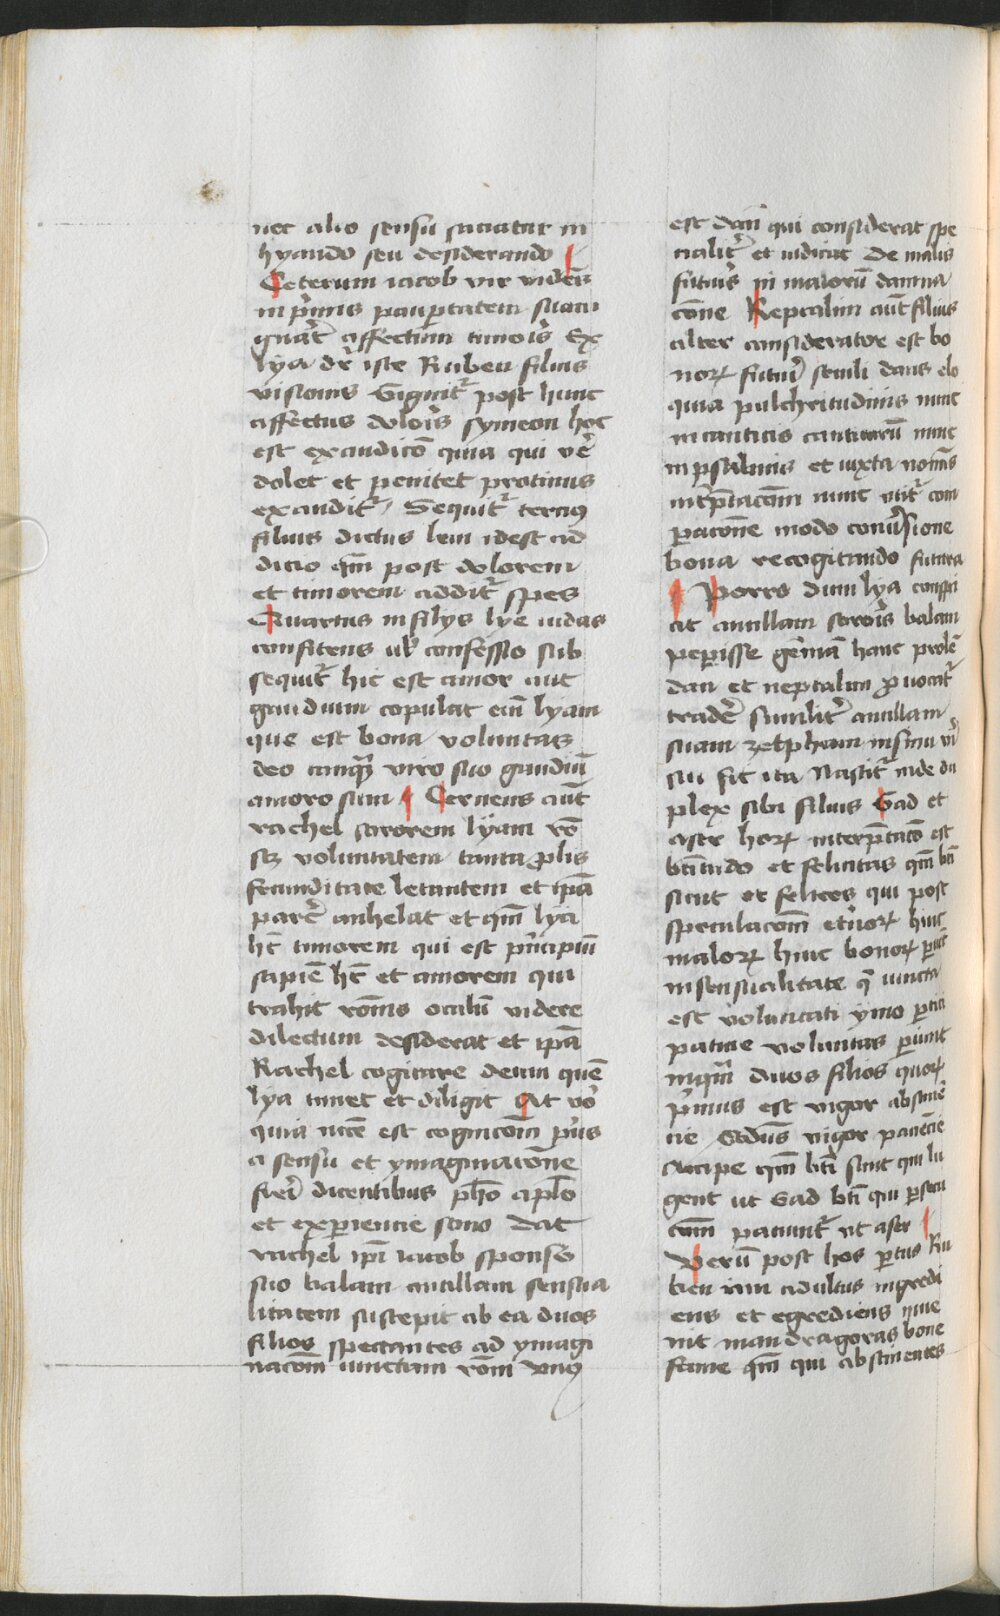 nec alio sensu saciatur in
hyando seu desiderando ¶
Ceterum iacob vir vidēs
in p̄mis paup̄tatem suam
gnāt affectum timoīs Ex
lya dr̄ iste Ruben filius
visionis Gignit᷑ post hunc
affectus doloīs symeon hoc
est exaudicō quia qui ve᷑
dolet et penitet protinus
exaudit᷑ / Sequit᷑ tercius
filius dictus leui idest ad
dicio qm̄ post dolorem
et timorem addit᷑ spes
Quartus in filijs lye iudas
confitens ubi confessio sub
sequit᷑ hic est amor aut
gaudium copulat em̄ lyam
que est bona voluntas
deo tanqȝ viro suo gaudiū
amoro sum ¶ Cernens aut̄
rachel sororem lyam rō
sꝫ voluntatem tanta ꝓlis
fecunditate letantem et ip̄a
parē anhelat et qm̄ lya
hꝫ timorem qui est p̄ncipiū
sapiē hꝫ et amorem qui
trahit rōnis oculū videre
dilectum desiderat et ip̄a
Rachel cogitare deum quē
lya timet et diligit At vo᷑
quia nec̄e est cognicōm p̄us
a sensu et ymaginacōne
fieri dicentibus ph̄o apl̄o
et experiencie sono dat
rachel ip̄i iacob sponso
suo balam ancillam sensua
litatem suscepit ab ea duos
filios spectantes ad ymagi
nacōm iunctam rōni vnus
est dan qui considerat spe
cialit᷑ et iudicat de malis
futuris in maiorū damna
cōne Neptalim aut̄ filius
alter considerator est bo
noꝝ futuroꝝ simili dans elo
quia pulchritudinis nunc
in canticis canticorū nunc
in psalmis et iuxta nomīs
int᷑p̄tacōm nunc vtit᷑ com
paracōne modo conuersione
bona recogitando futura
¶ Porro dum lya conspi
cit ancillam sororis balam
peperisse geminā hanc prolē
dan et neptalim ꝓuocat᷑
tradere similit᷑ ancillam
suam zelpham in sinu viri
sui fit ita Nascit᷑ inde du
plex sibi filius Gad et
aser hoꝝ interp̄tacō est
beatitudo et felicitas qm̄ bt̄i
sunt et felices qui post
speculacōm et᷑noꝝ hinc
maloꝝ hinc bonoꝝ
in sensualitate q̄ iuncta
est voluntati ymo
voluntas pariunt
inquam duos filios quoꝝ
p̄mus est vigor abstinē
cie Secundus vigor paciencie
accipe qm̄ bt̄i sunt qui lu
gent ut Gad bt̄i qui p̄secu
cōm paciunt᷑ vt aser ¶
Verū post hos partus Ru
ben iam adultus ingredi
ens et egrediens inue
nit mandragoras bone
fame qm̄ qui abstinentes